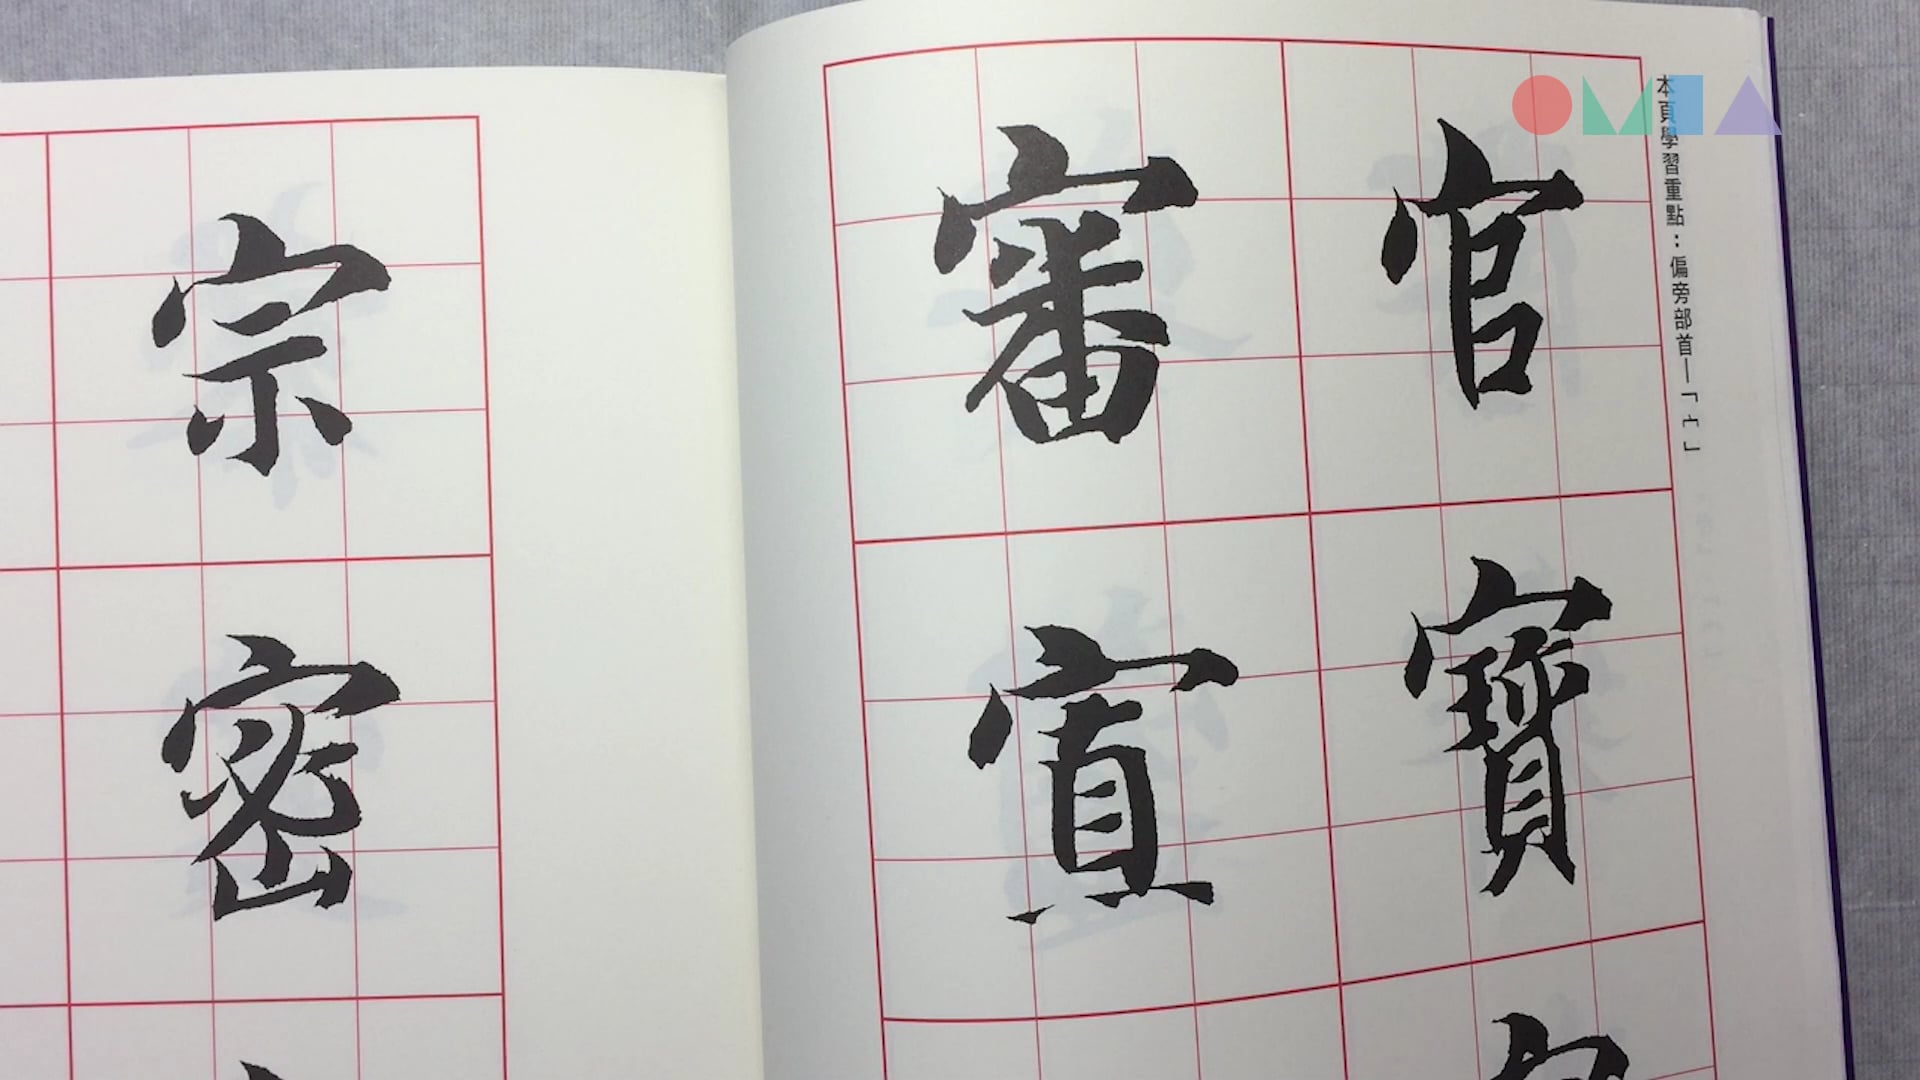 本頁學習重點：偏旁部首—「宀」
官寶
審賓
宗密
OMIA